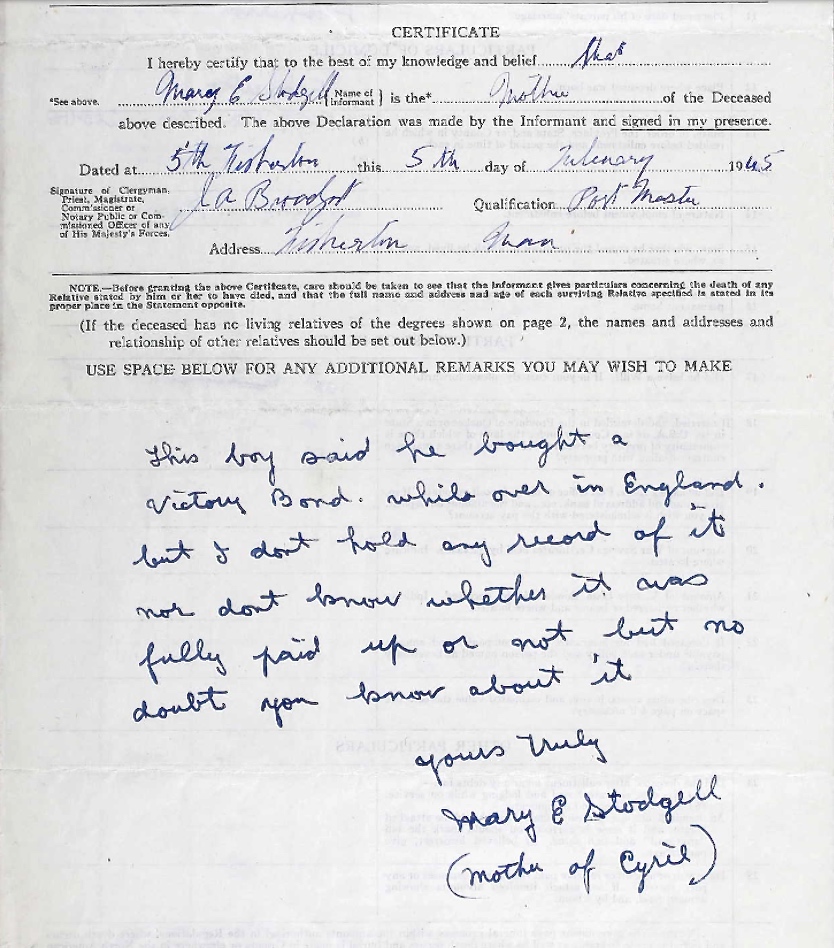 CERTIFICATE
I hereby certify that to the best of my knowledge and belief that
*See above. Mary E Stodgell {Name of Informant} is the* Mother of the Deceased
above described. The above Declaration was made by the Informant and signed in my presence.
Dated at 5th Fisherton this 5th day of February 1945
Signature of Clergyman,
Priest, Magistrate,
Commissioner or
Notary Public or Com-
missioned Officer of any
of His Majesty's Forces.
J A
Qualification Post Master
Address Fisherton Man
NOTE.—Before granting the above Certificate, care should be taken to see that the Informant gives particulars concerning the death of any
Relative stated by him or her to have died, and that the full name and address and age of each surviving Relative specified is stated in its
proper place in the Statement opposite.
(If the deceased has no living relatives of the degrees shown on page 2, the names and addresses and
relationship of other relatives should be set out below.)
USE SPACE BELOW FOR ANY ADDITIONAL REMARKS YOU MAY WISH TO MAKE
This boy said he bought a
Victory Bond. while over in England.
but I dont hold any record of it
nor dont know whether it was
fully paid up or not but no
doubt you know about it
yours Truly
Mary E Stodgell
(Mother of Cyril)